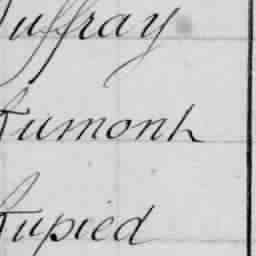 Auffray
Aumont
Aupied